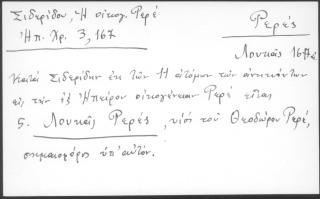 Σιδερίδου, Ἡ οἰκογ. Ρερέ
Ἠπ. Χρ. 3, 167
Ρερές
Λουκᾶς 16
Κατὰ Σιδερίδην ἐκ τῶν 11 ἀτόμων τῶν ἀνηκόντων
εἰς τὴν ἐξ Ἠπείρου οἰκογένειαν Ρερέ
5. Λουκᾶς Ρερές, υἱὸς τοῦ Θεοδώρου Ρερέ,
σημαιοφόρος ὑπ' αὐτόν.